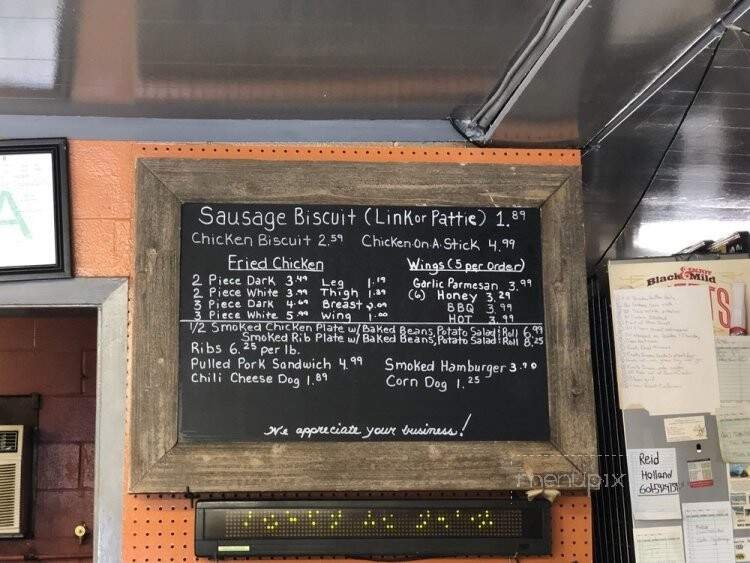 Sausage Biscuit (Link or Pattie) 1.89
Chicken Biscuit 2.59 Chicken-On-A-Stick 4.99
Fried Chicken
2 Piece Dark 3.49 Leg 1.19
2 Piece White 3.99 Thigh 1.89
3 Piece Dark 4.69 Breast
3 Piece White 5.99 Wing 1.00
Wings (5 per order)
Garlic Parmesan 3.99
(6) Honey 3.29
BBQ 3.99
HOT 3.99
1/2 Smoked Chicken Plate w/ Baked Beans, Potato Salad & Roll 6.99
Smoked Rib Plate w/ Baked Beans, Potato Salad & Roll 8.25
Ribs 6.25 per lb.
Pulled Pork Sandwich 4.99 Smoked Hamburger
Chili Cheese Dog 1.89 Corn Dog 1.25
We appreciate your business!
menupix
Black & Mild
Reid
Holland
A